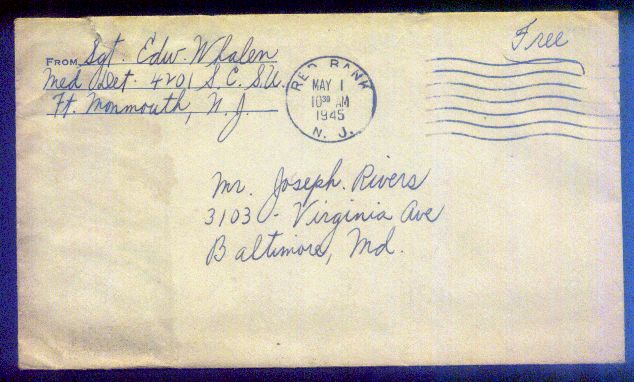 Free
FROM Sgt. Edw. Whalen
Med Det. 4201 S.C.S.U.
Ft. Monmouth, N.J.
RED BANK
MAY 1
10 30 AM
1945
N. J.
Mr. Joseph. Rivers
3103 - Virginia Ave
Baltimore, Md.